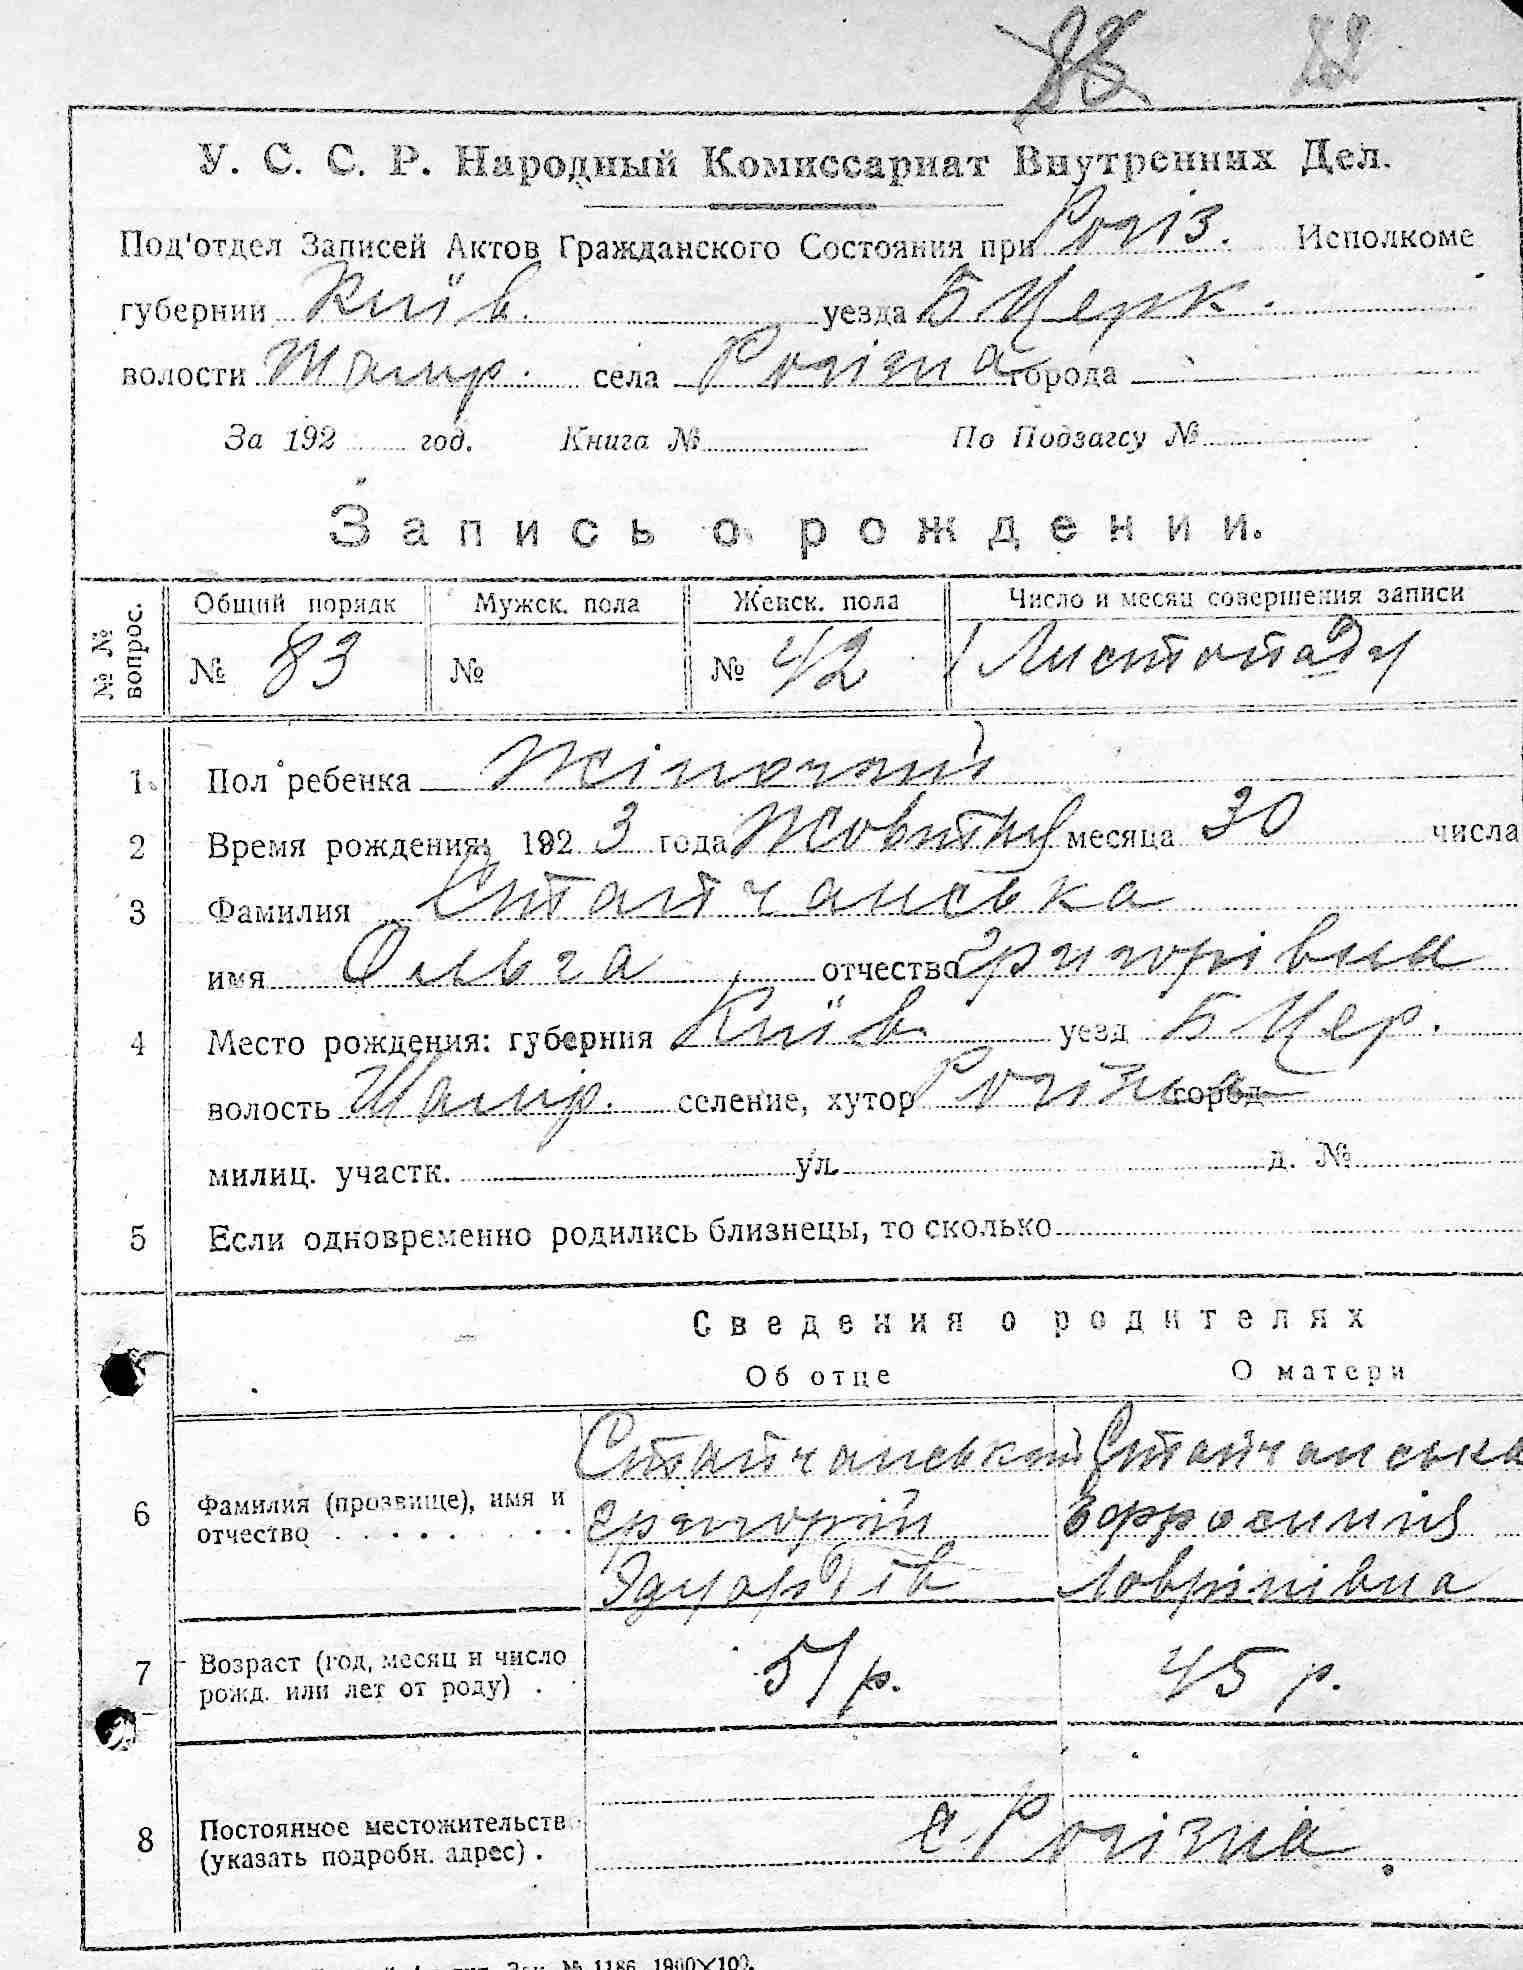 88 82
У. С. С. Р. Народный Комиссариат Внутренних Дел.
Под'отдел Записей Актов Гражданского Состояния при Рогіз. Исполкоме
губернии Київ. уезда Б Церк.
волости Шамр. села Рогізна города
За 192 год. Книга № По Подзагсу №
Запись о рождении.
№ № вопрос. Общий порядк Мужск. пола Женск. пола Число и месяц совершения записи
№ 83 № № 42 1 Листопаду
1 Пол ребенка Жіночий
2 Время рождения: 1923 года Жовтну месяца 30 числа
3 Фамилия Стайчанська
имя Ольга отчество Григорівна
4 Место рождения: губерния Київ. уезд Б Цер.
волость Шамр. селение, хутор Рогізна город
милиц. участк. ул. д. №
5 Если одновременно родились близнецы, то сколько
Сведения о родителях
Об отце О матери
Стайчанський Стайчанська
6 Фамилия (прозвище), имя и отчество Григорій Эфросиния
Эдуардів Лаврінівна
7 Возраст (год, месяц и число рожд. или лет от роду) . 51 р. 45 р.
8 Постоянное местожительств (указать подробн. адрес) . с. Рогізна.
Зак. № 1186 1900×100.